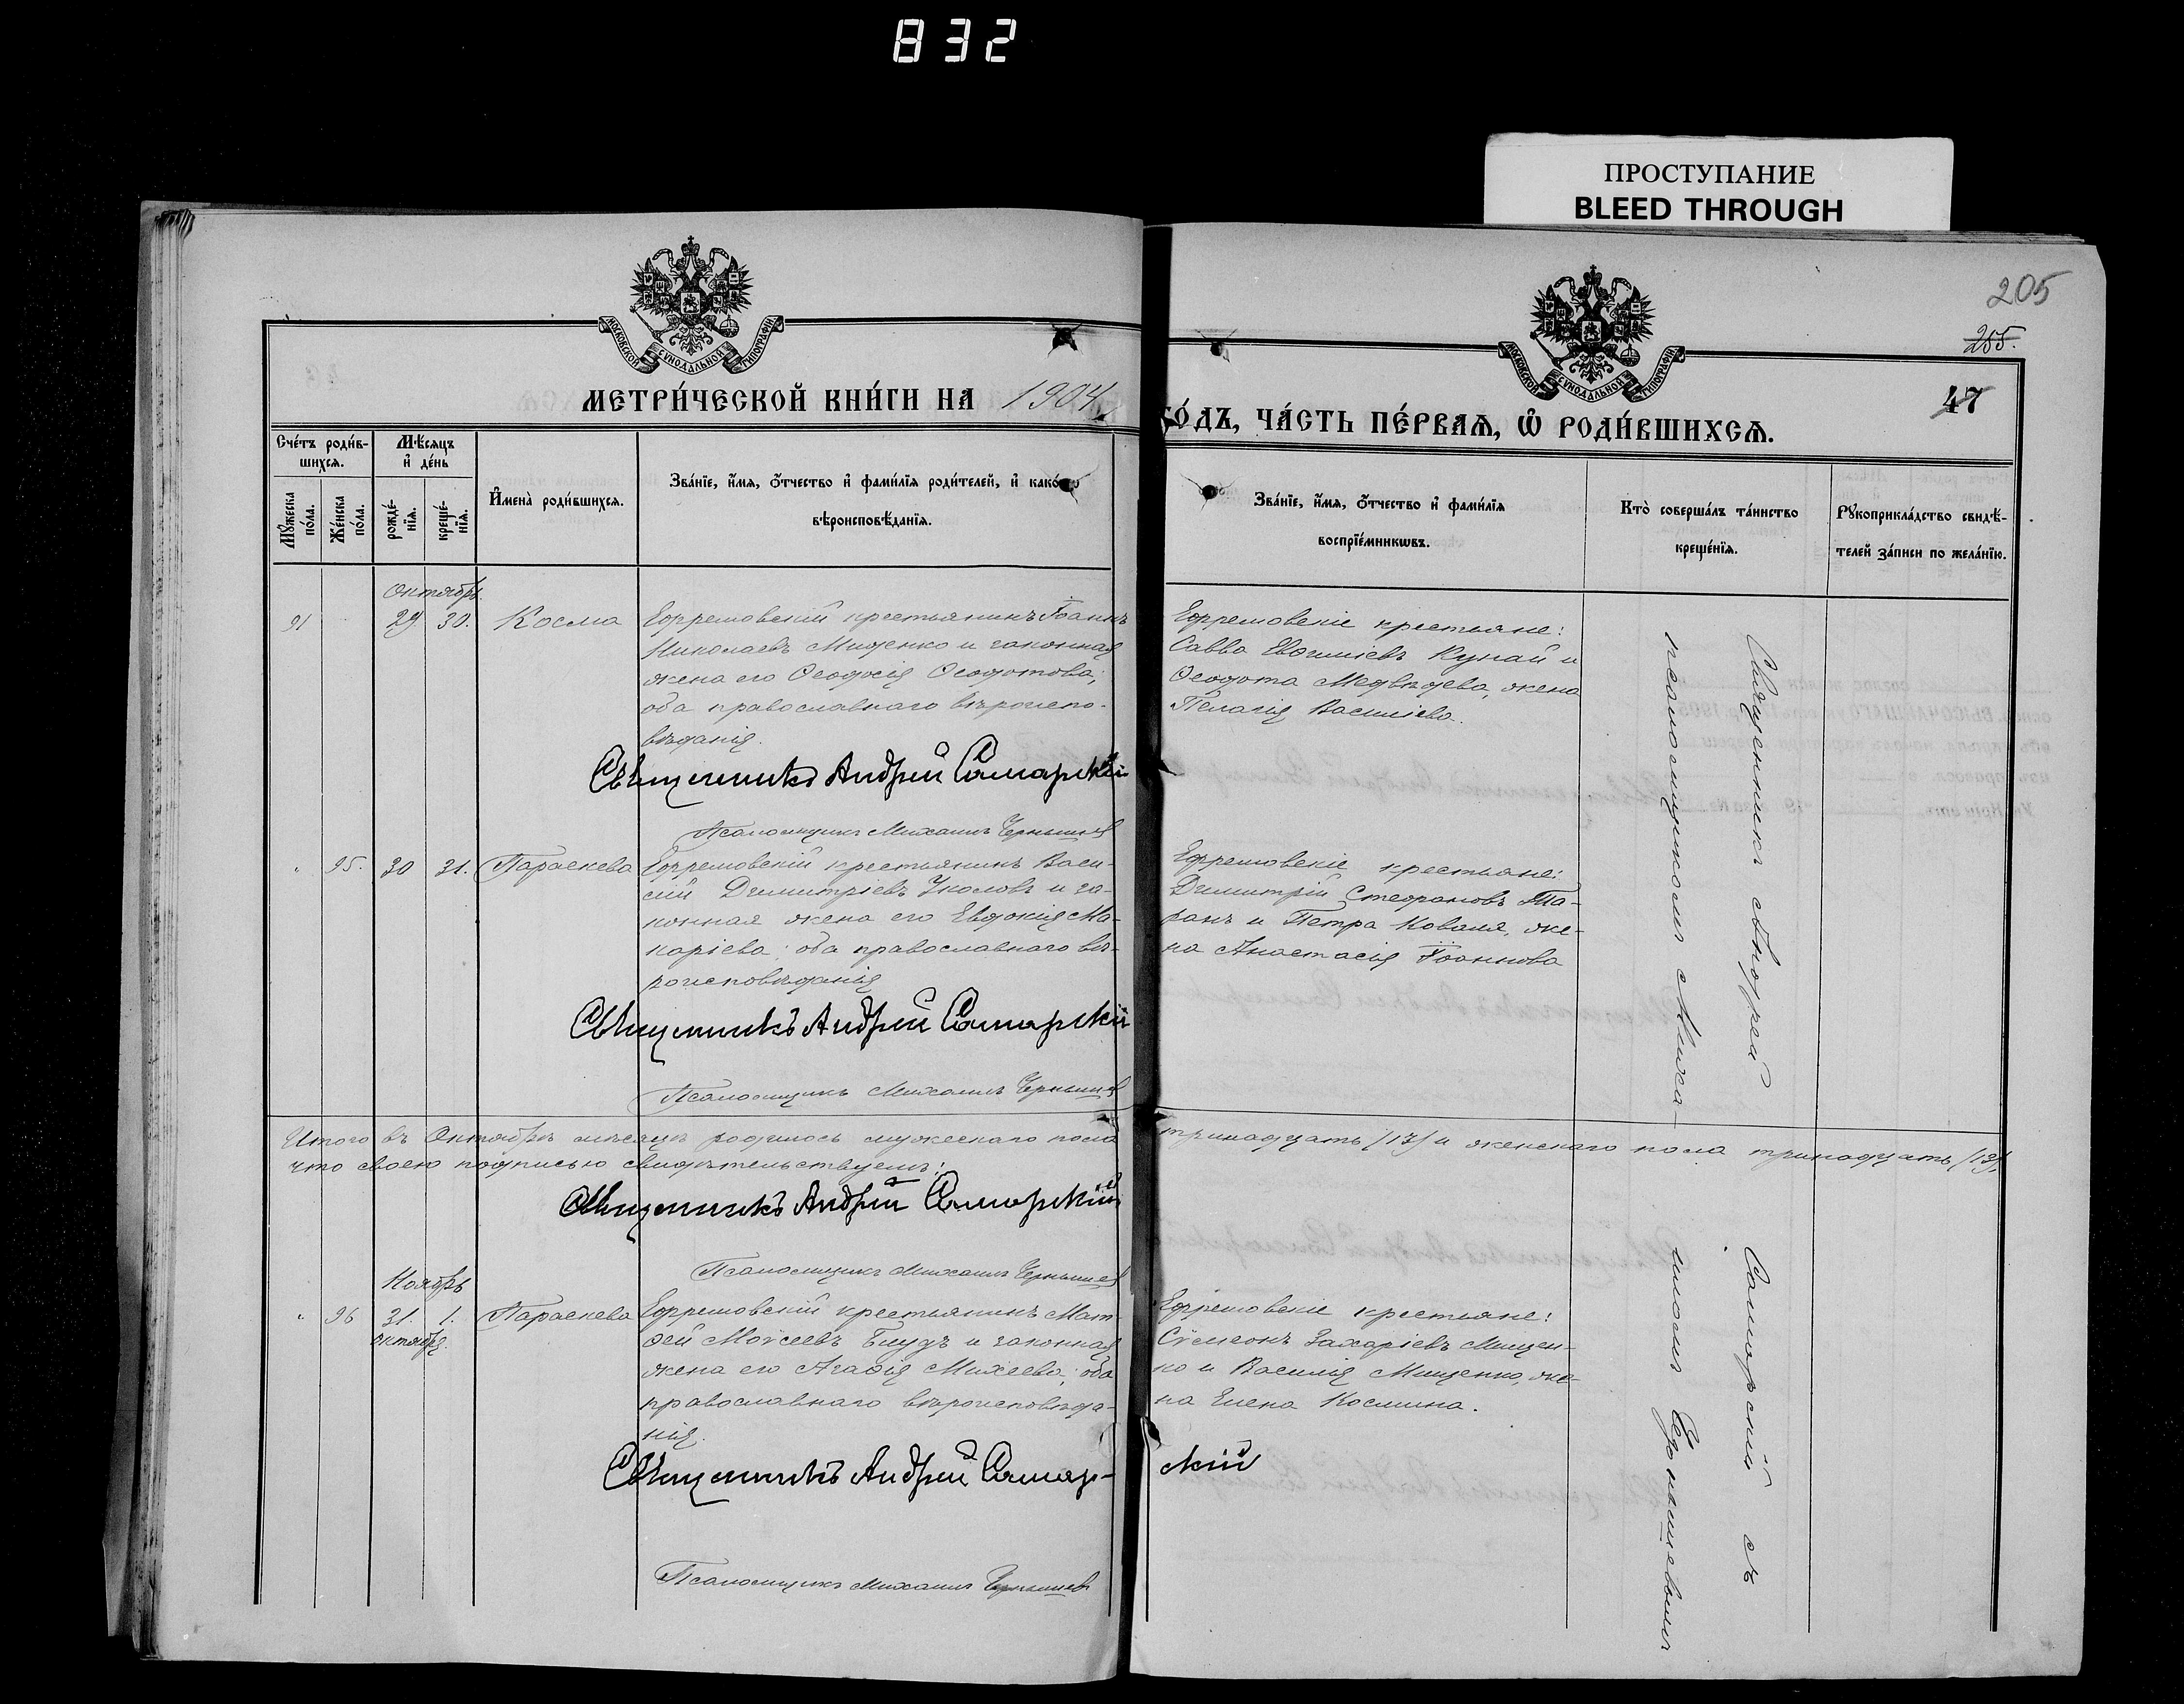 832
ПРОСТУПАНИЕ
BLEED THROUGH
205
255.
47
МОСКОВСКОЙ СѴНОДАЛЬНОЙ ТИПОГРАФІИ
МОСКОВСКОЙ СѴНОДАЛЬНОЙ ТИПОГРАФІИ
МЕТРИ́ЧЕСКОЙ КНИ́ГИ НА 1904
ГО́ДЪ, ЧА́СТЬ ПЕ́РВАЯ, Ѡ РОДИ́ВШИХСЯ.
Сче́тъ роди́в-
шихся.
Мѣ́сяцъ
и҆ де́нь
Мꙋжеска по́ла.
Же́нска по́ла.
рожде́-
нїѧ.
креще́-
нїѧ.
И҆мена̀ роди́вшихся.
Зва́нїе, и҆́мя, ѻ҆́тчество и҆ фами́лїя роди́телей, и҆ како́гѡ
вѣроисповѣ́данїя.
Зва́нїе, и҆́мя, ѻ҆́тчество и҆ фами́лїя
воспрїе́мникѡвъ.
Кто̀ соверша́лъ та́инство
креще́нїя.
Рꙋкоприкла́дство свидѣ́-
телей за́писи по жела́нїю.
Октябрь
91 29. 30. Косма
Ефремовскій крестьянинъ Іоаннъ
Николаевъ Мищенко и законная
жена его Ѳеодосія Ѳеодотова;
оба православнаго вѣроиспо-
вѣданія.
Священникъ Андрей Самарскій
Псаломщикъ Михаилъ Чернышев
Ефремовскіе крестьяне:
Савва Евѳиміевъ Кунай и
Ѳеодота Медвѣдева, жена
Пелагія Василіева.
95. 30 31. Параскева
Ефремовскій крестьянинъ Васи-
лій Димитріевъ Уколовъ и за-
конная жена его Евдокія Ма-
каріева; оба православнаго вѣ-
роисповѣданія
Священникъ Андрей Самарскій
Псаломщикъ Михаилъ Чернышев
Ефремовскіе крестьяне:
Димитрій Стефановъ Та-
ранъ и Петра Коваля, же-
на Анастасія Іоаннова
Итого въ Октябрѣ мѣсяцѣ родилось мужескаго пола тринадцать /13/ и женскаго пола тринадцать /13/,
что своею подписью свидѣтельствуемъ:
Священникъ Андрей Самарскій
Псаломщикъ Михаилъ Чернышев
Ноябрь
96 31. 1. Параскева
октября.
Ефремовскій крестьянинъ Мат-
ѳей Моѵсеевъ Блудъ и законная
жена его Агаѳія Михеева; оба
православнаго вѣроисповѣда-
нія.
Священникъ Андрей Самар-
скій
Псаломщикъ Михаилъ Чернышев
Ефремовскіе крестьяне:
Сѵмеонъ Захаріевъ Мищен-
ко и Василія Мищенко, же-
на Елена Космина.
Священникъ Андрей Самарскій съ
псаломщикомъ Михаиломъ Чернышевымъ